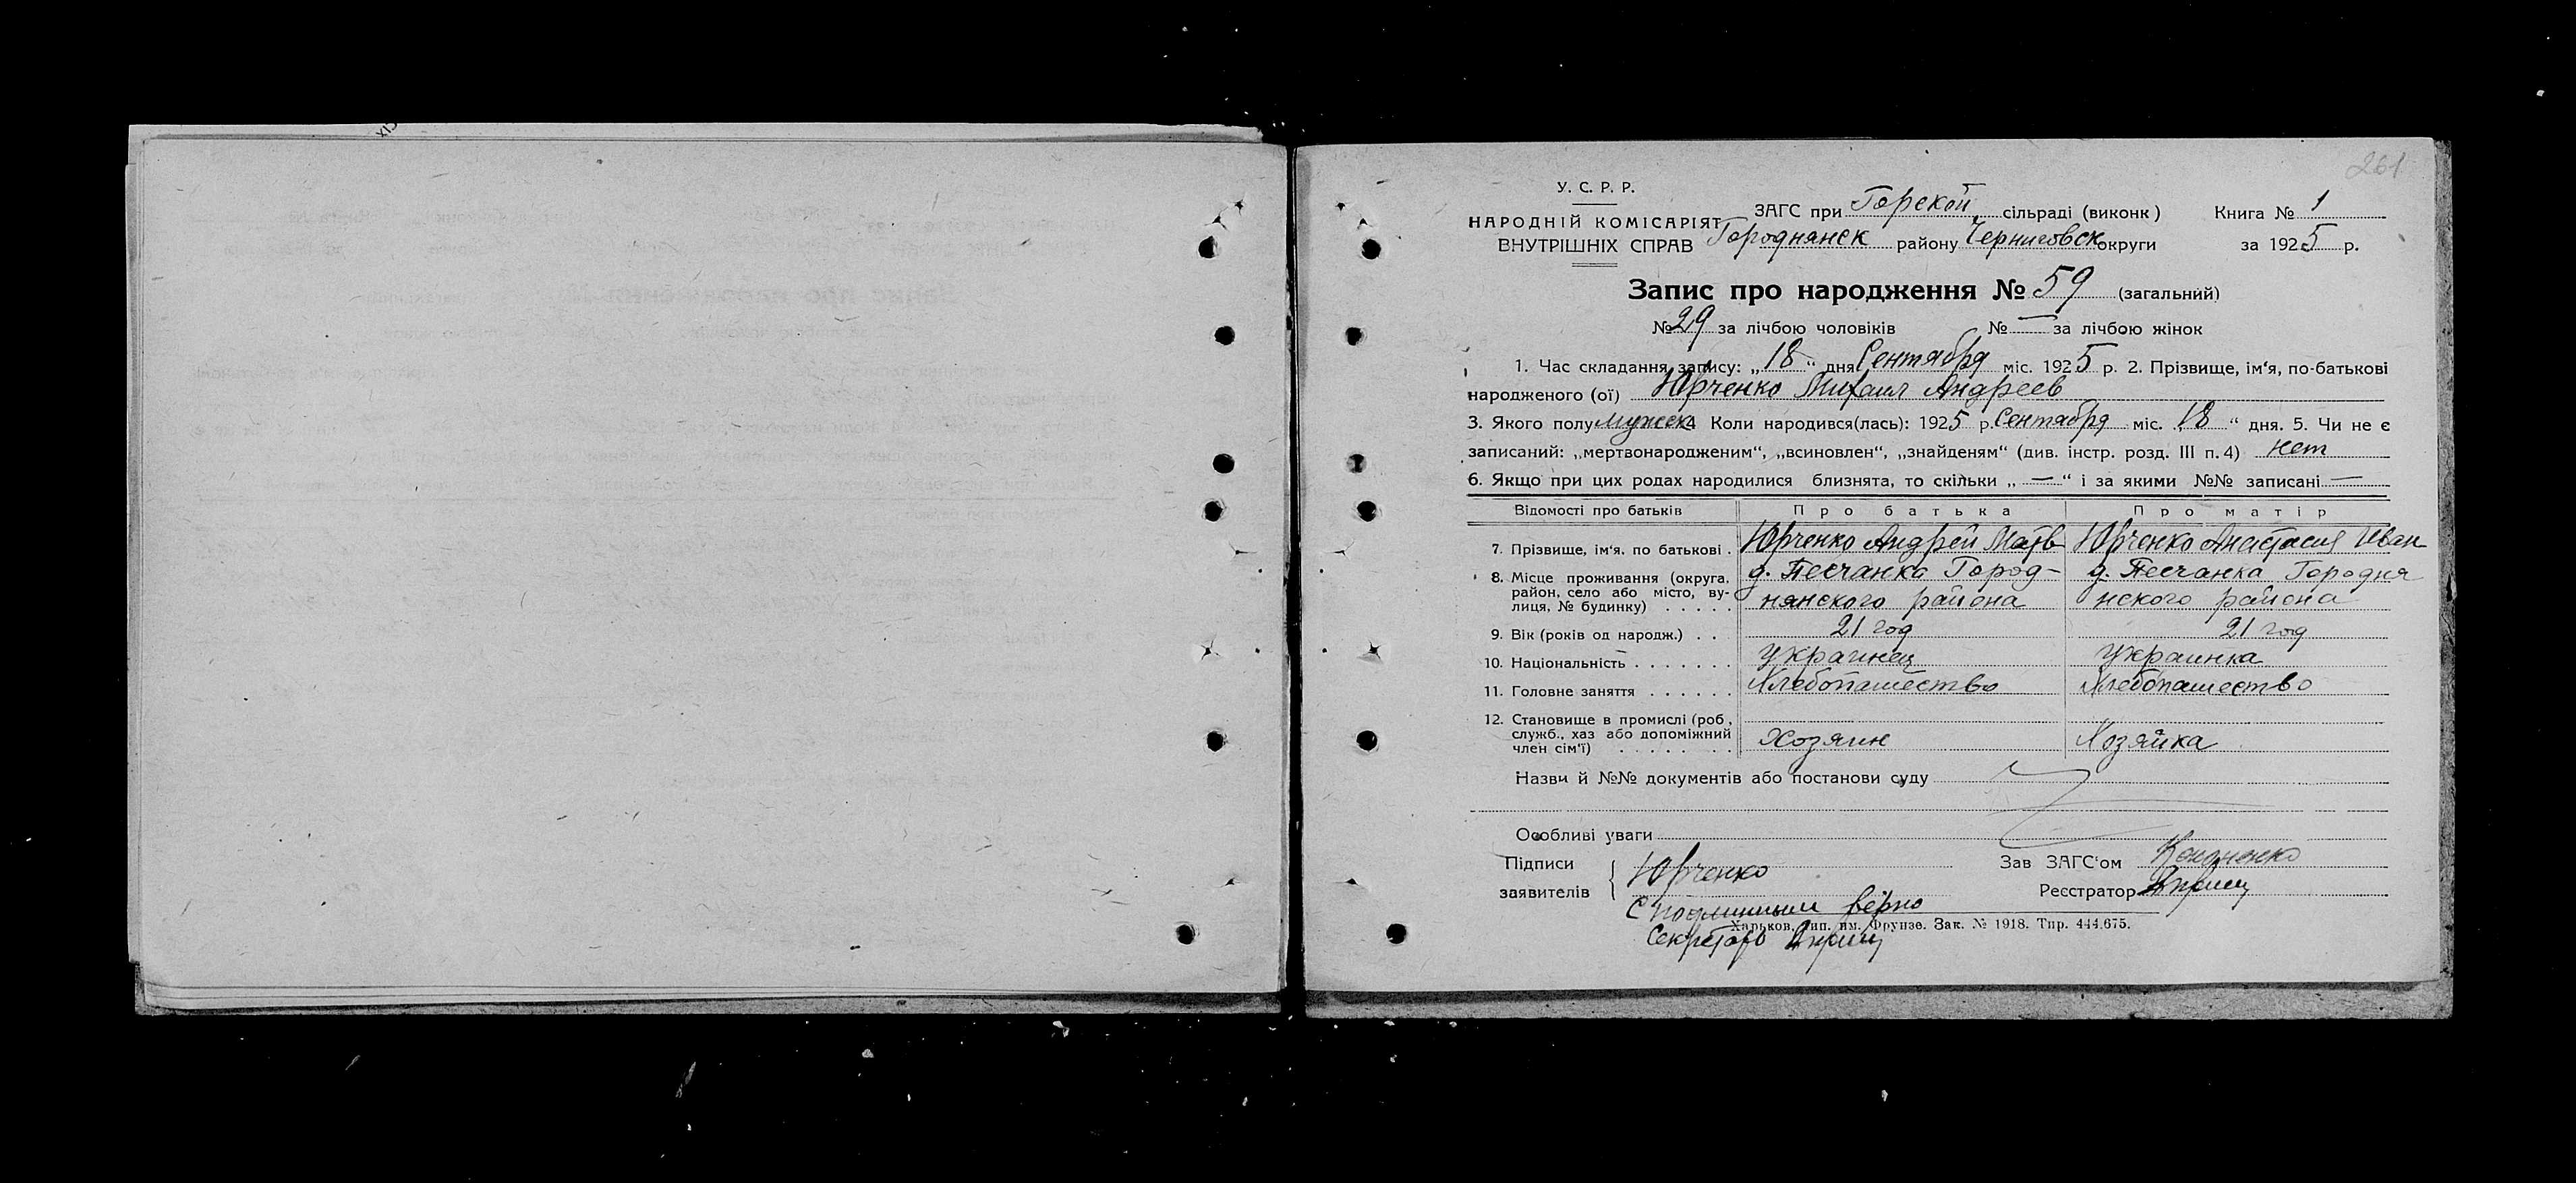 261
У. С. Р. Р.
НАРОДНІЙ КОМІСАРІЯТ
ВНУТРІШНІХ СПРАВ
ЗАГС при Горской сільраді (виконк) Книга № 1
Городнянск району Черниговск округи за 1925 р.
Запис про народження № 59 (загальний)
№ 29 за лічбою чоловіків № — за лічбою жінок
1. Час складання запису: „18“ дня Сентября міс. 1925 р. 2. Прізвище, ім‘я, по-батькові
народженого (ої) Юрченко Михаил Андреев
3. Якого полу мужск 4 Коли народився(лась): 1925 р. Сентября міс. „18“ дня. 5. Чи не є
записаний: „мертвонародженим“, „всиновлен“, „знайденям“ (див. інстр. розд. III п. 4) нет
6. Якщо при цих родах народилися близнята, то скільки „—“ і за якими №№ записані —
Відомості про батьків Про батька Про матір
7. Прізвище, ім‘я, по батькові . Юрченко Андрей Матв Юрченко Анастасия Иван
8. Місце проживання (округа, район, село або місто, вулиця, № будинку) . . . . .
д. Песчанка Город- д. Песчанка Городня
нянского района нского района
9. Вік (років од народж.) . . 21 год 21 год
10. Національність . . . . . . . украинец украинка
11. Головне заняття . . . . . . Хлебопашество Хлебопашество
12. Становище в промислі (роб, служб., хаз або допоміжний член сім‘ї) . . . . . . . Хозяин Хозяйка
Назви й №№ документів або постанови суду
Особливі уваги
Підписи
заявителів
Юрченко
Зав ЗАГС‘ом
Реєстратор
С подлинным верно
Харьков, Тип. им. Фрунзе. Зак. № 1918. Тир. 444.675.
Секретарь